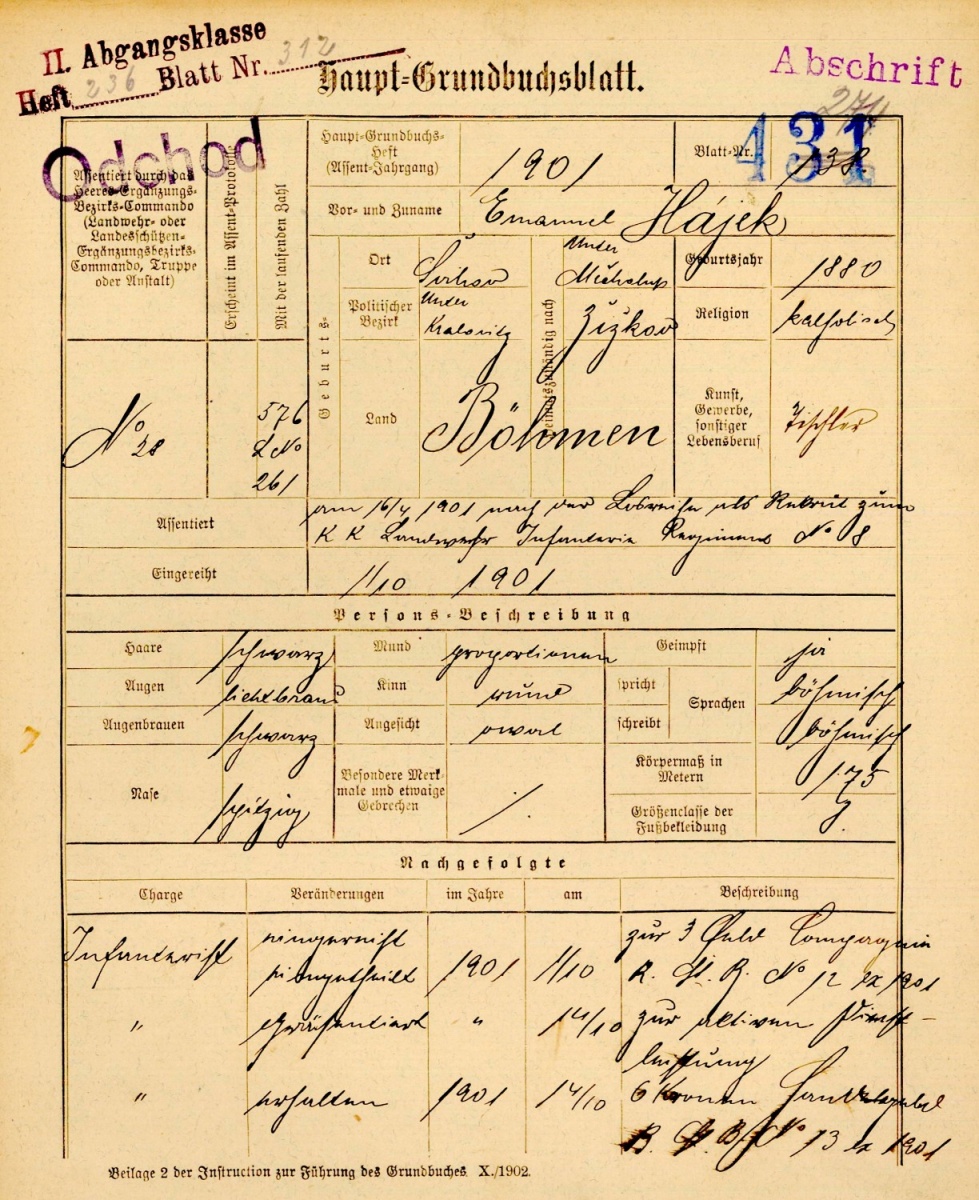 II. Abgangsklasse
Heft 236 Blatt Nr. 312
Haupt-Grundbuchsblatt.
Abschrift
274
Odchod
431
Assentiert durch das
Heeres-Ergänzungs-
Bezirks-Commando
(Landwehr- oder
Landesschützen-
Ergänzungsbezirks-
Commando, Truppe
oder Anstalt)
Erscheint im Assent-Protokolle
Mit der laufenden Zahl
Haupt-Grundbuchs-
Heft
(Assent-Jahrgang)
1901
Blatt-Nr.
138.
Vor- und Zuname
Emanuel Hájek
Geburts-
Ort
Unter
Geburtsjahr
1880
Politischer
Bezirk
Unter
Kralovitz
Heimatszuständig nach
Žižkov
Religion
katholisch
Land
Böhmen
Kunst,
Gewerbe,
sonstiger
Lebensberuf
Tischler
No 28
576
L No
261
Assentiert
am 16/4 1901 nach der Losreihe als Rekrut zum
K K Landwehr Infanterie Regiment No 8
Eingereiht
1/10 1901
Persons-Beschreibung
Haare
schwarz
Mund
proportioniert
Geimpft
ja
Augen
lichtbraun
Kinn
rund
spricht
Sprachen
böhmisch
Augenbrauen
schwarz
Angesicht
oval
schreibt
böhmisch
Nase
spitzig
Besondere Merk-
male und etwaige
Gebrechen
/.
Körpermaß in
Metern
1.75
Größenclasse der
Fußbekleidung
Nachgefolgte
Charge
Veränderungen
im Jahre
am
Beschreibung
Infanterist
eingereiht
zur 3 Feld Compagnie
eingetheilt
1901
1/10
No 12 ex 1901
"
Präsentiert
"
14/10
zur aktiven Dienst-
leistung
"
erhalten
1901
14/10
6 Kronen
No 13 ex 1901
Beilage 2 der Instruction zur Führung des Grundbuches X./1902.